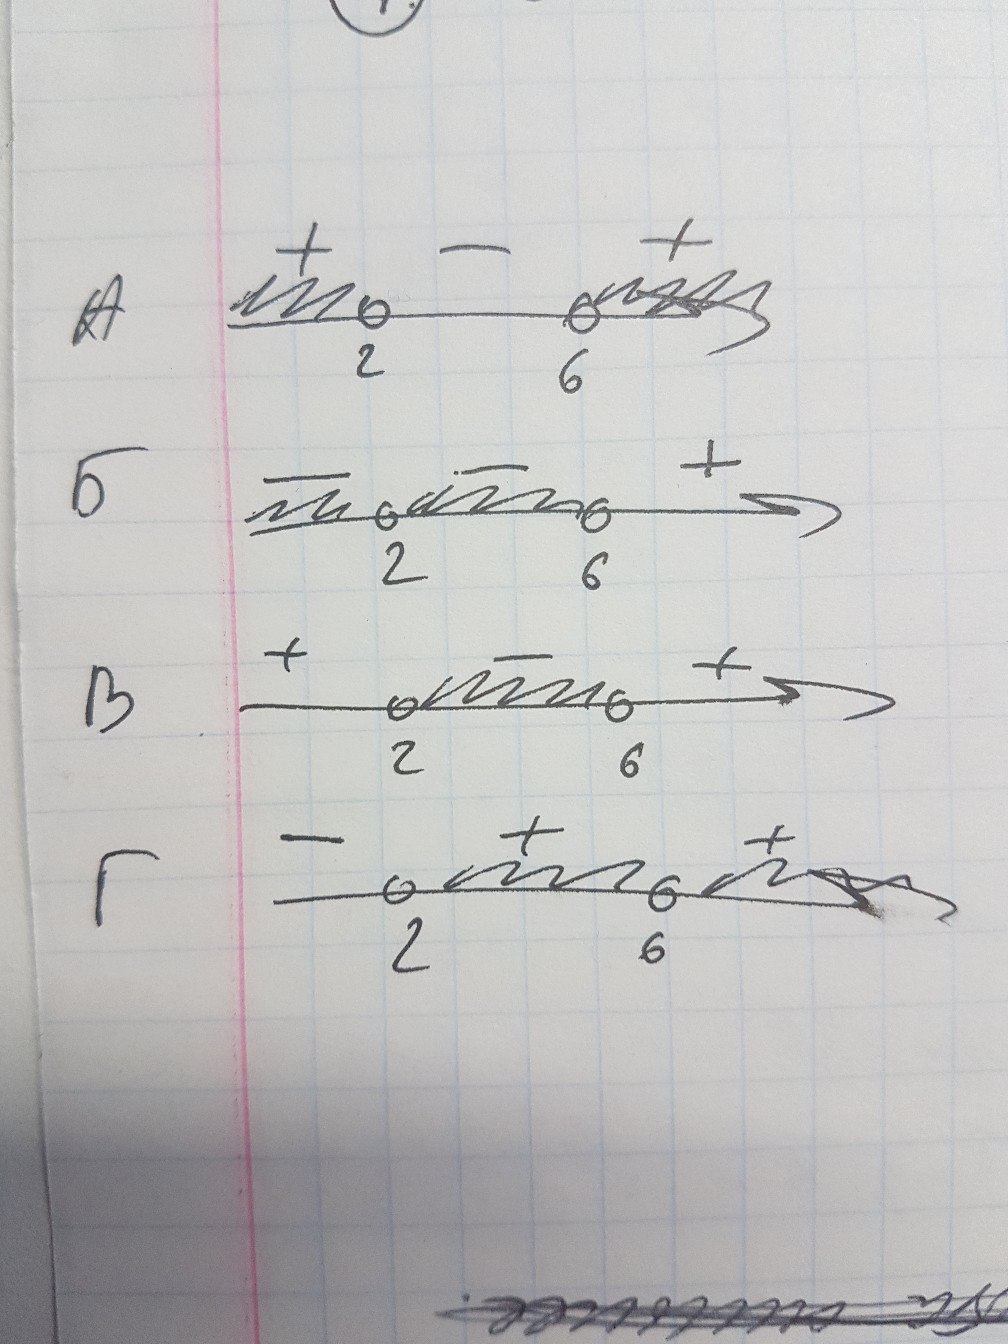 + − +
А
2 6
− − +
Б
2 6
+ − +
В
2 6
− + +
Г
2 6